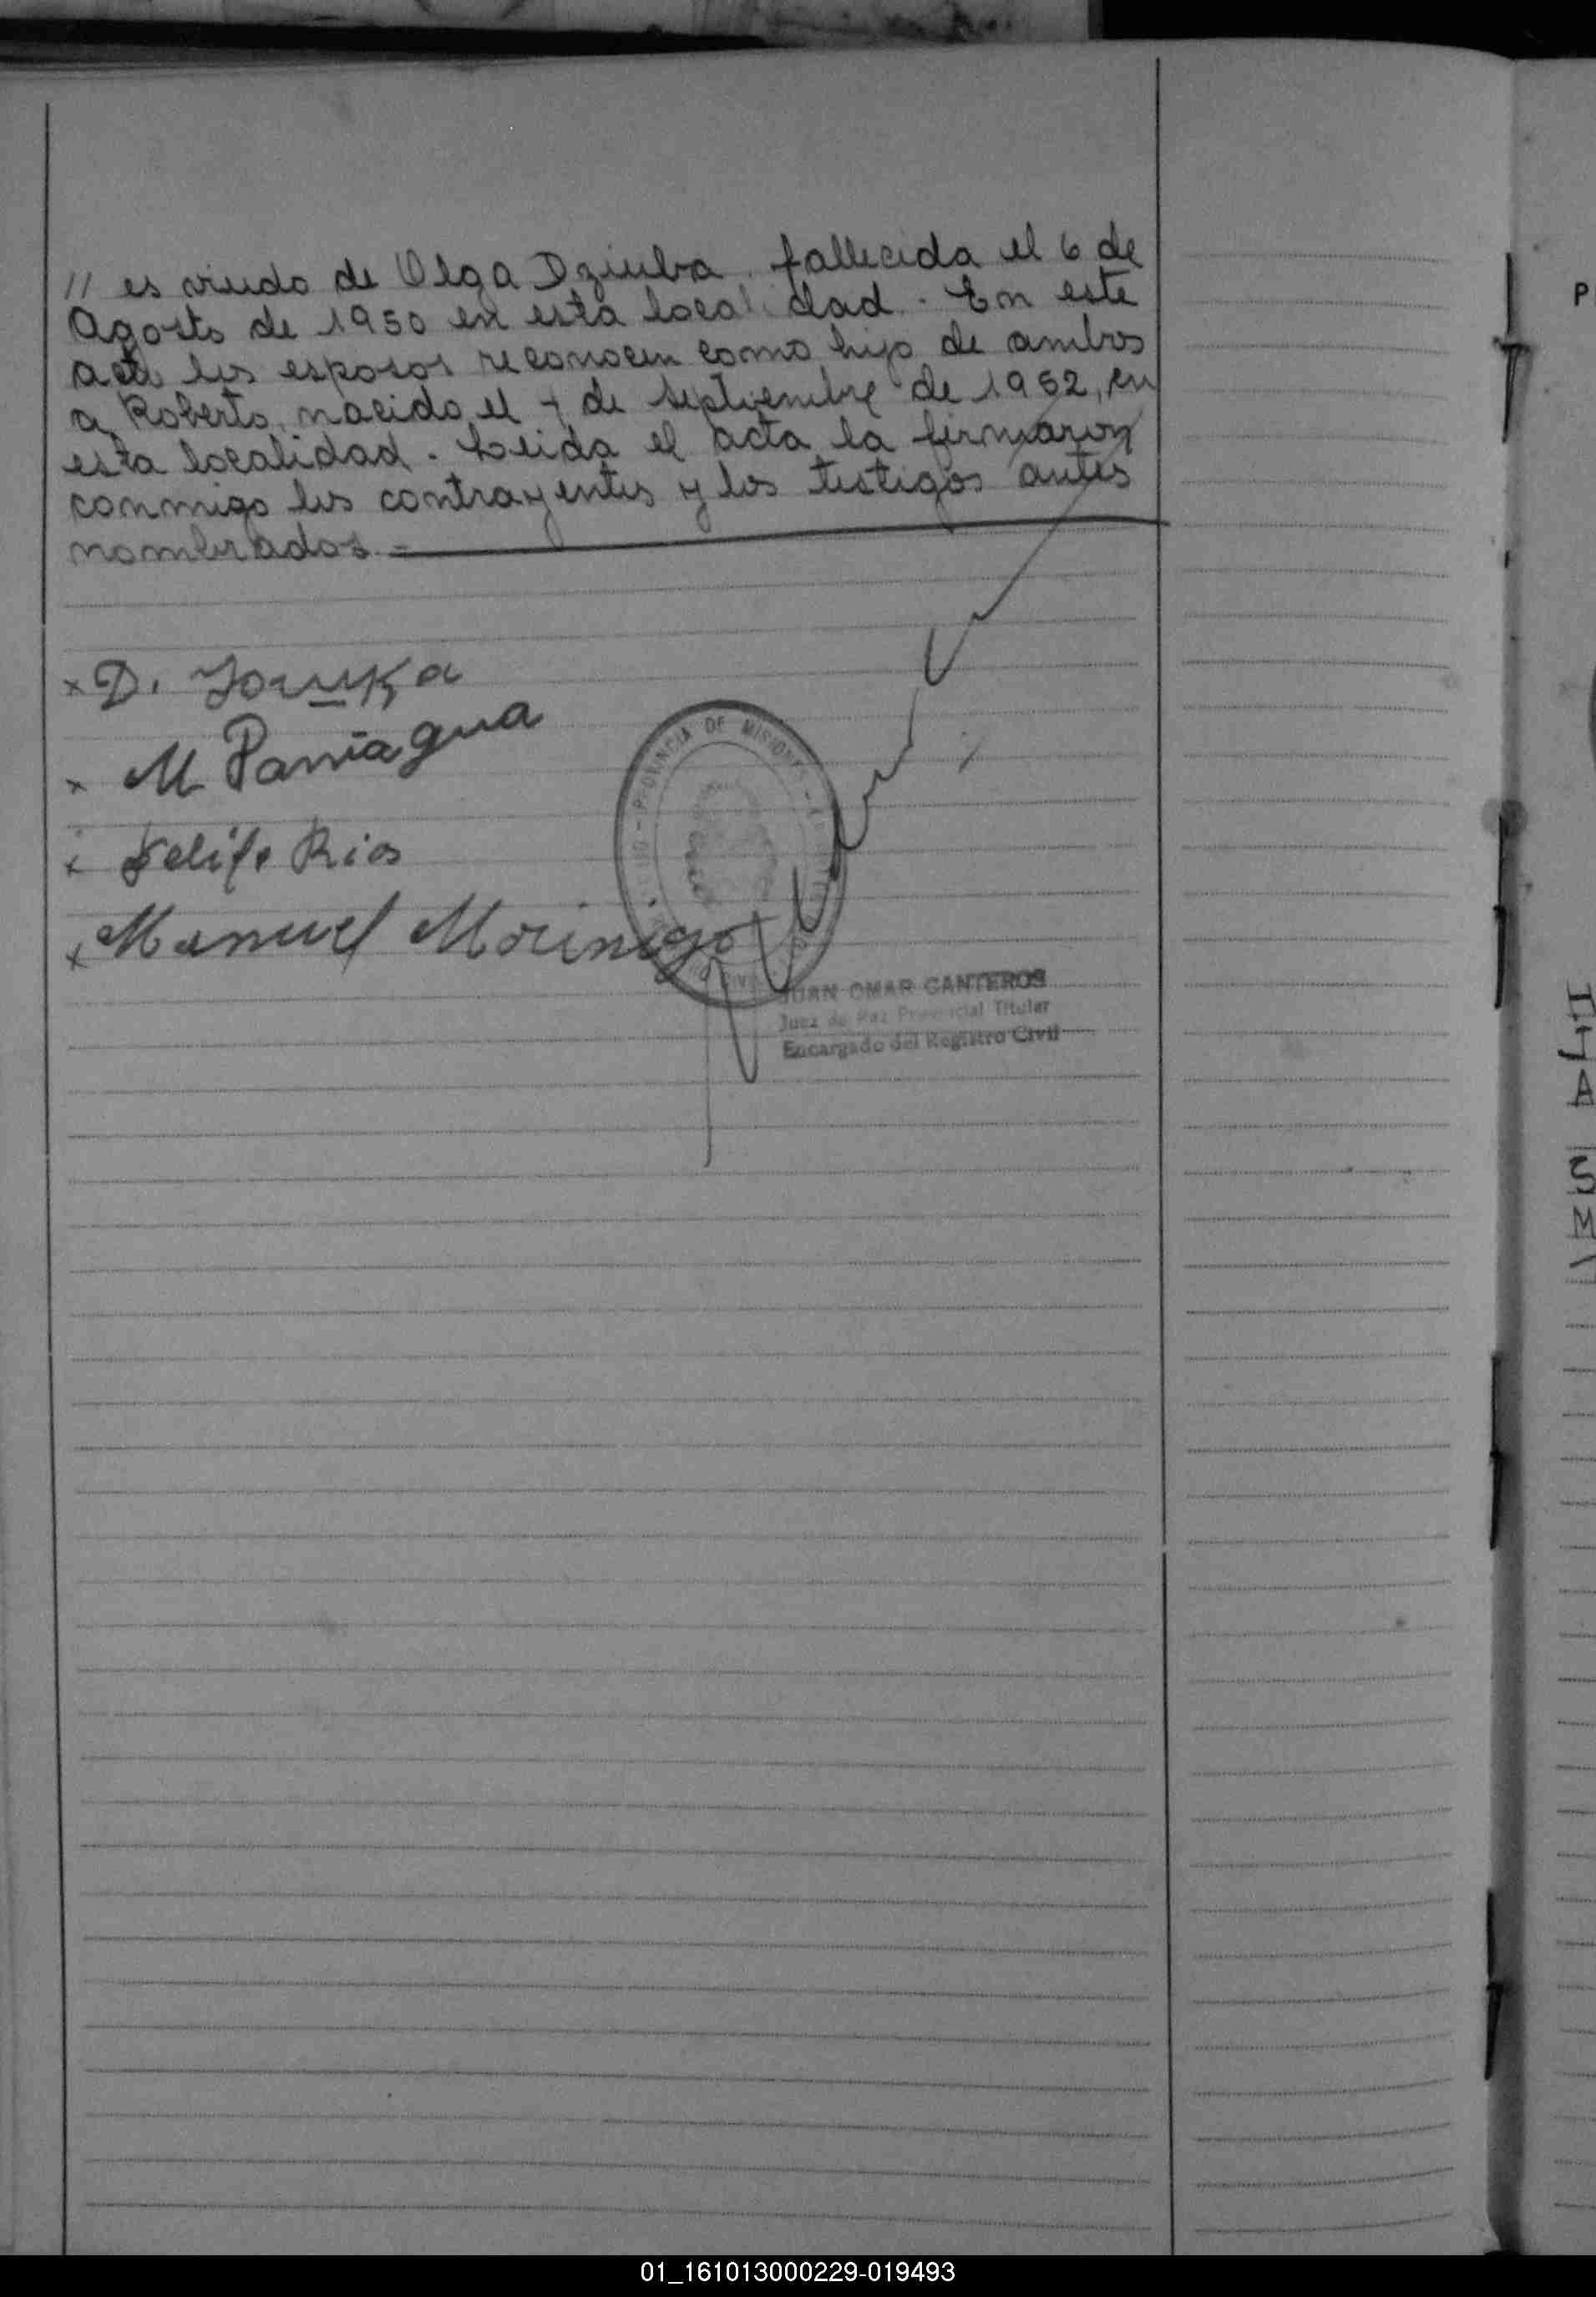 // es viudo de Olga Dziuba. fallecida el 6 de
Agosto de 1950 en esta localidad. En este
acto los esposos reconocen como hijo de ambos
a Roberto, nacido el de Septiembre de 1962, en
esta localidad. Leida el acta la firmaron
conmigo los contrayentes y los testigos antes
nombrados. =
x D.
x M Paniagua
x Felipe Rios
x Manuel Morinigo
PROVINCIA DE MISIONES
JUAN OMAR CANTEROS
Juez de Paz Provincial Titular
Encargado del Registro Civil
P
A
S
M
01_161013000229-019493